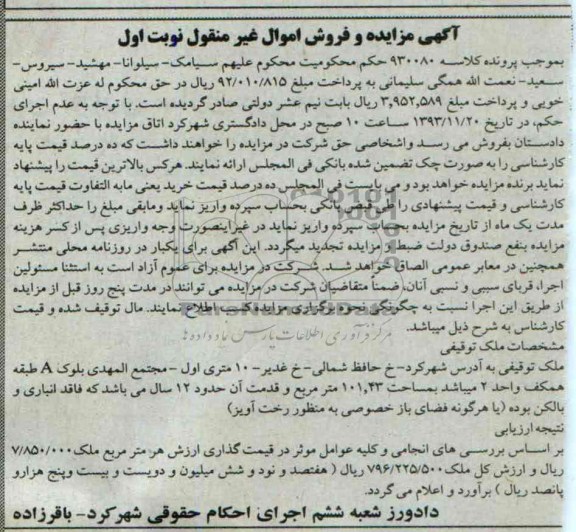 آگهی مزایده و فروش اموال غیر منقول نوبت اول
بموجب پرونده کلاسه ۹۳۰۰۸۰ حکم محکومیت محکوم علیهم سیامک- سیلوانا- مهشید- سیروس-
سعید- نعمت الله همگی سلیمانی به پرداخت مبلغ ۹۲/۰۱۰/۸۱۵ ریال در حق محکوم له عزت الله امینی
خویی و پرداخت مبلغ ۳,۹۵۲,۵۸۹ ریال بابت نیم عشر دولتی صادر گردیده است. با توجه به عدم اجرای
حکم، در تاریخ ۱۳۹۳/۱۱/۲۰ ساعت ۱۰ صبح در محل دادگستری شهرکرد اتاق مزایده با حضور نماینده
دادستان بفروش می رسد واشخاصی حق شرکت در مزایده را خواهند داشت که ده درصد قیمت پایه
کارشناسی را به صورت چک تضمین شده بانکی فی المجلس ارائه نمایند. هرکس بالاترین قیمت را پیشنهاد
نماید برنده مزایده خواهد بود و می بایست فی المجلس ده درصد قیمت خرید یعنی مابه التفاوت قیمت پایه
کارشناسی و قیمت پیشنهادی را طی قبض بانکی بحساب سپرده واریز نماید ومابقی مبلغ را حداکثر ظرف
مدت یک ماه از تاریخ مزایده بحساب سپرده واریز نماید در غیراینصورت وجه واریزی پس از کسر هزینه
مزایده بنفع صندوق دولت ضبط و مزایده تجدید میگردد. این آگهی برای یکبار در روزنامه محلی منتشر
همچنین در معابر عمومی الصاق خواهد شد. شرکت در مزایده برای عموم آزاد است به استثنا مسئولین
اجرا، قربای سببی و نسبی آنان، ضمنا متقاضیان شرکت در مزایده می توانند در مدت پنج روز قبل از مزایده
از طریق این اجرا نسبت به چگونگی نحوه برگزاری مزایده کسب اطلاع نمایند. مال توقیف شده و قیمت
کارشناس به شرح ذیل میباشد.
مشخصات ملک توقیفی
ملک توقیفی به آدرس شهرکرد-خ حافظ شمالی-خ غدیر- ۱۰ متری اول - مجتمع المهدی بلوک A طبقه
همکف واحد ۲ میباشد بمساحت ۱۰۱,۴۳ متر مربع و قدمت آن حدود ۱۲ سال می باشد که فاقد انباری و
بالکن بوده (یا هرگونه فضای باز خصوصی به منظور رخت آویز)
نتیجه ارزیابی
بر اساس بررسی های انجامی و کلیه عوامل موثر در قیمت گذاری ارزش هر متر مربع ملک ۷/۸۵۰/۰۰۰
ریال و ارزش کل ملک ۷۹۶/۲۲۵/۵۰۰ ریال ( هفتصد و نود و شش میلیون و دویست و بیست وپنج هزارو
پانصد ریال ) برآورد و اعلام می گردد.
دادورز شعبه ششم اجرای احکام حقوقی شهرکرد- باقرزاده